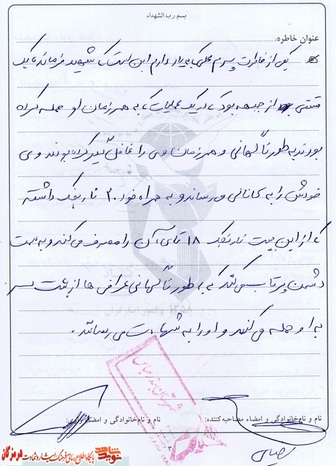 بسم رب الشهداء
عنوان خاطره:
یکی از خاطرات و پسرم که بیاد دارم این است که شهید فرمانده یک
از جبهه بود که در یک عملیات که به همرزمان او حمله کرده
بودند به طور ناگهانی و همرزمان وی را غافلگیر کرده بودند وی
خودش را به کانالی می‌رساند و به همراه خود ۲۰ نارنجک داشته
که از این بیست نارنجک ۱۸ تای آن را مصرف می‌کند و به سمت
دشمن پرتاب می‌کند که به طور ناگهانی عراقی ها از پشت سر
به او حمله می‌کنند و او را به شهادت می رسانند.
نام و نام‌خانوادگی و امضاء مصاحبه‌کننده:
نام و نام‌خانوادگی و امضاء